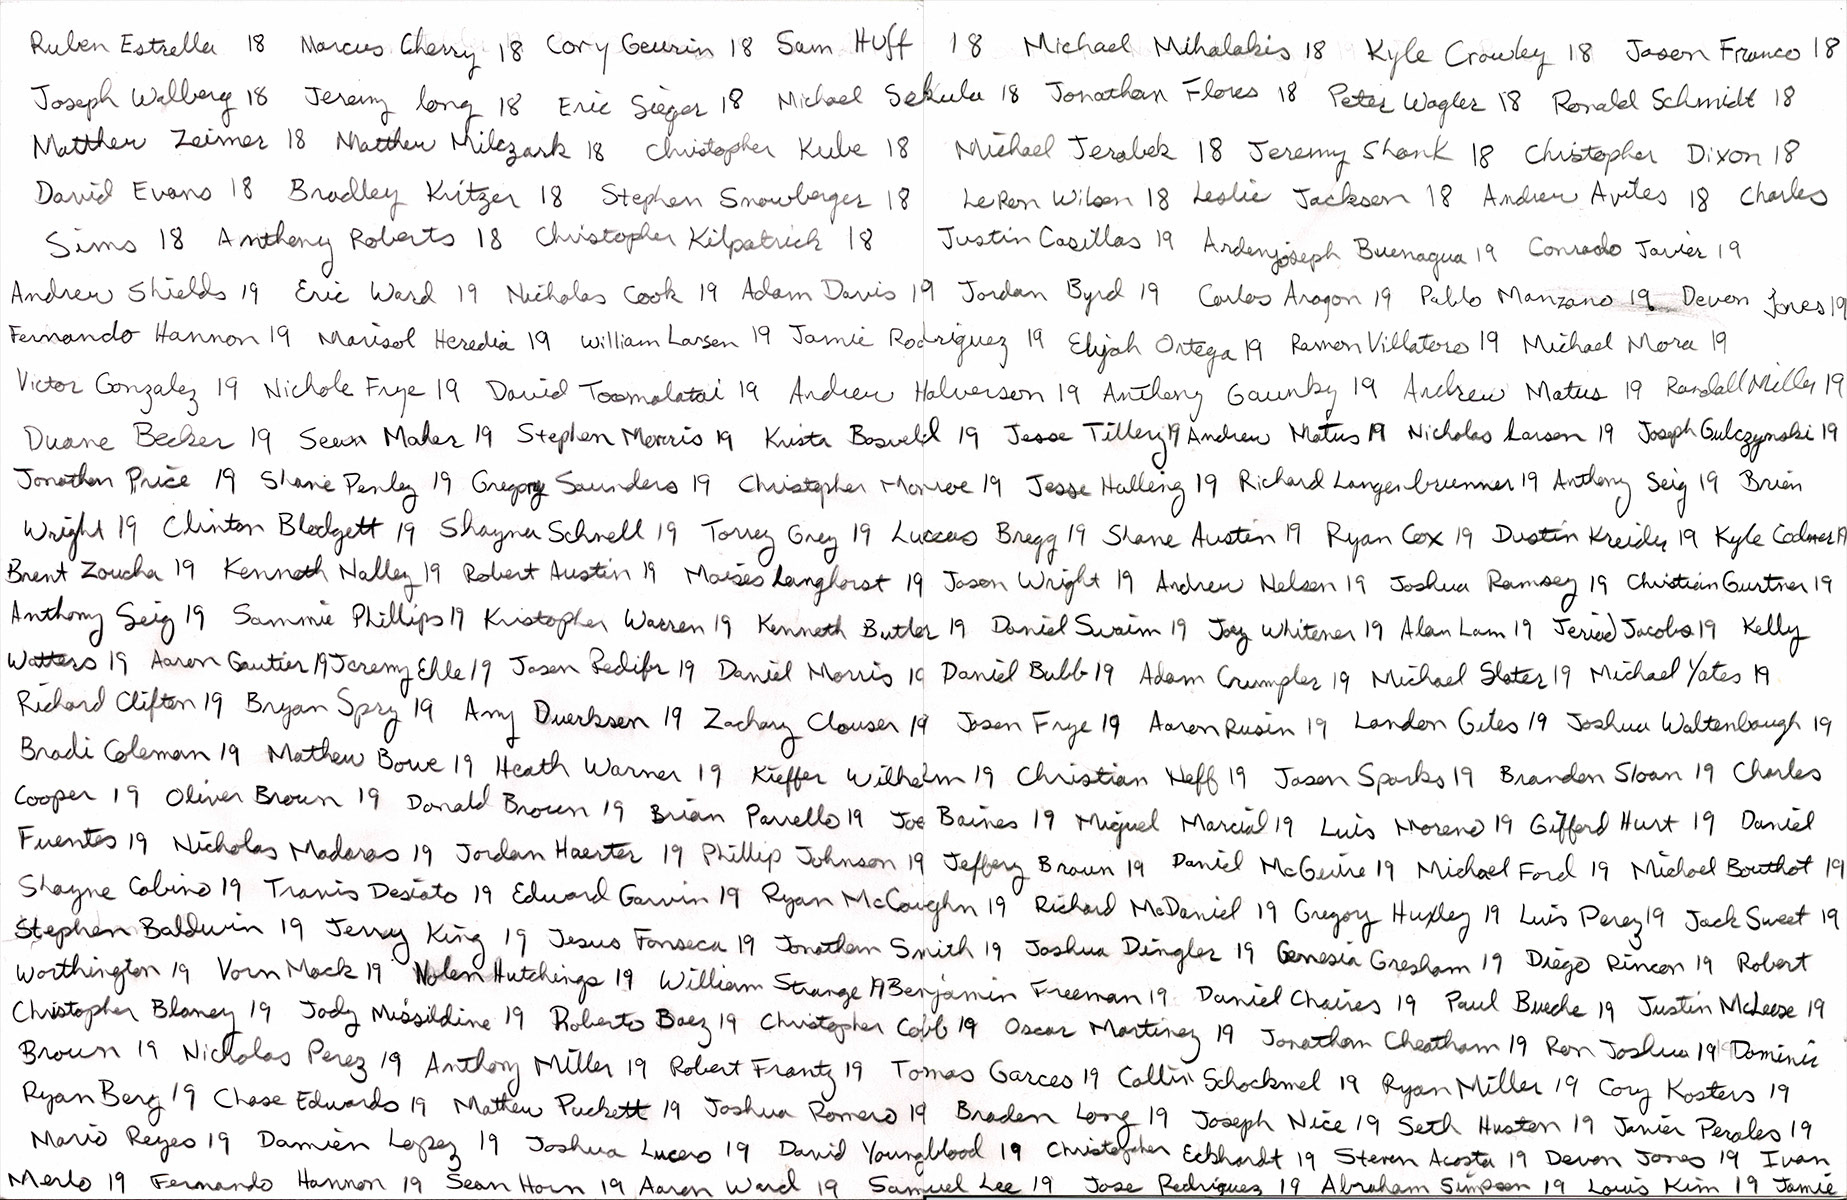 Ruben Estrella 18 Marcus Cherry 18 Cory Geurin 18 Sam Huff 18 Michael Mihalakis 18 Kyle Crowley 18 Jason Franco 18
Joseph Walberg 18 Jeremy Long 18 Eric Sieger 18 Michael Sekula 18 Jonathan Flores 18 Peter Wagler 18 Ronald Schmidt 18
Matthew Zeimer 18 Matthew Milczark 18 Christopher Kube 18 Michael Jerabek 18 Jeremy Shank 18 Christopher Dixon 18
David Evans 18 Bradley Kritzer 18 Stephen Snowberger 18 LeRon Wilson 18 Leslie Jackson 18 Andrew Aviles 18 Charles
Sims 18 Anthony Roberts 18 Christopher Kilpatrick 18 Justin Casillas 19 Ardenjoseph Buenagua 19 Conrado Javier 19
Andrew Shields 19 Eric Ward 19 Nicholas Cook 19 Adam Davis 19 Jordan Byrd 19 Carlos Aragon 19 Pablo Manzano 19 Devon Jones 19
Fernando Hannon 19 Marisol Heredia 19 William Larsen 19 Jamie Rodriguez 19 Elijah Ortega 19 Ramon Villatoro 19 Michael Mora 19
Victor Gonzalez 19 Nichole Frye 19 David Toomalatai 19 Andrew Halverson 19 Anthony Gaunky 19 Andrew Matus 19 Randall Milly 19
Duane Becker 19 Sean Maher 19 Stephen Morris 19 Krista Bosveld 19 Jesse Tillery 19 Andrew Matus 19 Nicholas Larson 19 Joseph Gulczynski 19
Jonathan Price 19 Shane Penley 19 Gregory Saunders 19 Christopher Monroe 19 Jesse Halling 19 Richard Langenbrunner 19 Anthony Seig 19 Brian
Wright 19 Clinton Blodgett 19 Shayna Schnell 19 Torrey Grey 19 Luccas Bregg 19 Shane Austin 19 Ryan Cox 19 Dustin Kreider 19 Kyle Codner 19
Brent Zoucha 19 Kenneth Nalley 19 Robert Austin 19 Moises Langhorst 19 Jason Wright 19 Andrew Nelson 19 Joshua Ramsey 19 Christian Gurtner 19
Anthony Seig 19 Sammie Phillips 19 Kristopher Warren 19 Kenneth Butler 19 Daniel Swaim 19 Joey Whitener 19 Alan Lam 19 Jeriod Jacobs 19 Kelly
Watters 19 Aaron Gautier 19 Jeremy Ehle 19 Jason Redifer 19 Daniel Morris 19 Daniel Bubb 19 Adam Crumpler 19 Michael Slater 19 Michael Yates 19
Richard Clifton 19 Bryan Spry 19 Amy Duerksen 19 Zachary Clouser 19 Jason Frye 19 Aaron Rusin 19 Landon Giles 19 Joshua Waltenbaugh 19
Bradi Coleman 19 Mathew Bowe 19 Heath Warner 19 Kieffer Wilhelm 19 Christian Neff 19 Jason Sparks 19 Brandon Sloan 19 Charles
Cooper 19 Oliver Brown 19 Donald Brown 19 Brian Parrello 19 Joe Baines 19 Miguel Marcial 19 Luis Moreno 19 Gifford Hurt 19 Daniel
Fuentes 19 Nicholas Madaras 19 Jordan Haerter 19 Phillip Johnson 19 Jeffery Brown 19 Daniel McGuire 19 Michael Ford 19 Michael Bouthot 19
Shayne Cabino 19 Travis Desiato 19 Edward Garvin 19 Ryan McCaughn 19 Richard McDaniel 19 Gregory Huxley 19 Luis Perez 19 Jack Sweet 19
Stephen Baldwin 19 Jerry King 19 Jesus Fonseca 19 Jonathan Smith 19 Joshua Dingler 19 Genesia Gresham 19 Diego Rincon 19 Robert
Worthington 19 Vorn Mack 19 Nolen Hutchings 19 William Strange 19 Benjamin Freeman 19 Daniel Chaires 19 Paul Bueche 19 Justin McLeese 19
Christopher Blaney 19 Jody Missildine 19 Roberto Baez 19 Christopher Cobb 19 Oscar Martinez 19 Jonathan Cheatham 19 Ron Joshua 19 Dominic
Brown 19 Nicholas Perez 19 Anthony Miller 19 Robert Frantz 19 Tomas Garces 19 Collin Schockmel 19 Ryan Miller 19 Cory Kosters 19
Ryan Berg 19 Chase Edwards 19 Mathew Puckett 19 Joshua Romero 19 Braden Long 19 Joseph Nice 19 Seth Huston 19 Javier Perales 19
Mario Reyes 19 Damien Lopez 19 Joshua Lucero 19 David Youngblood 19 Christopher Eckhardt 19 Steven Acosta 19 Devon Jones 19 Ivan
Merlo 19 Fernando Hannon 19 Sean Horn 19 Aaron Ward 19 Samuel Lee 19 Jose Rodriguez 19 Abraham Simpson 19 Louis Kim 19 Jamie